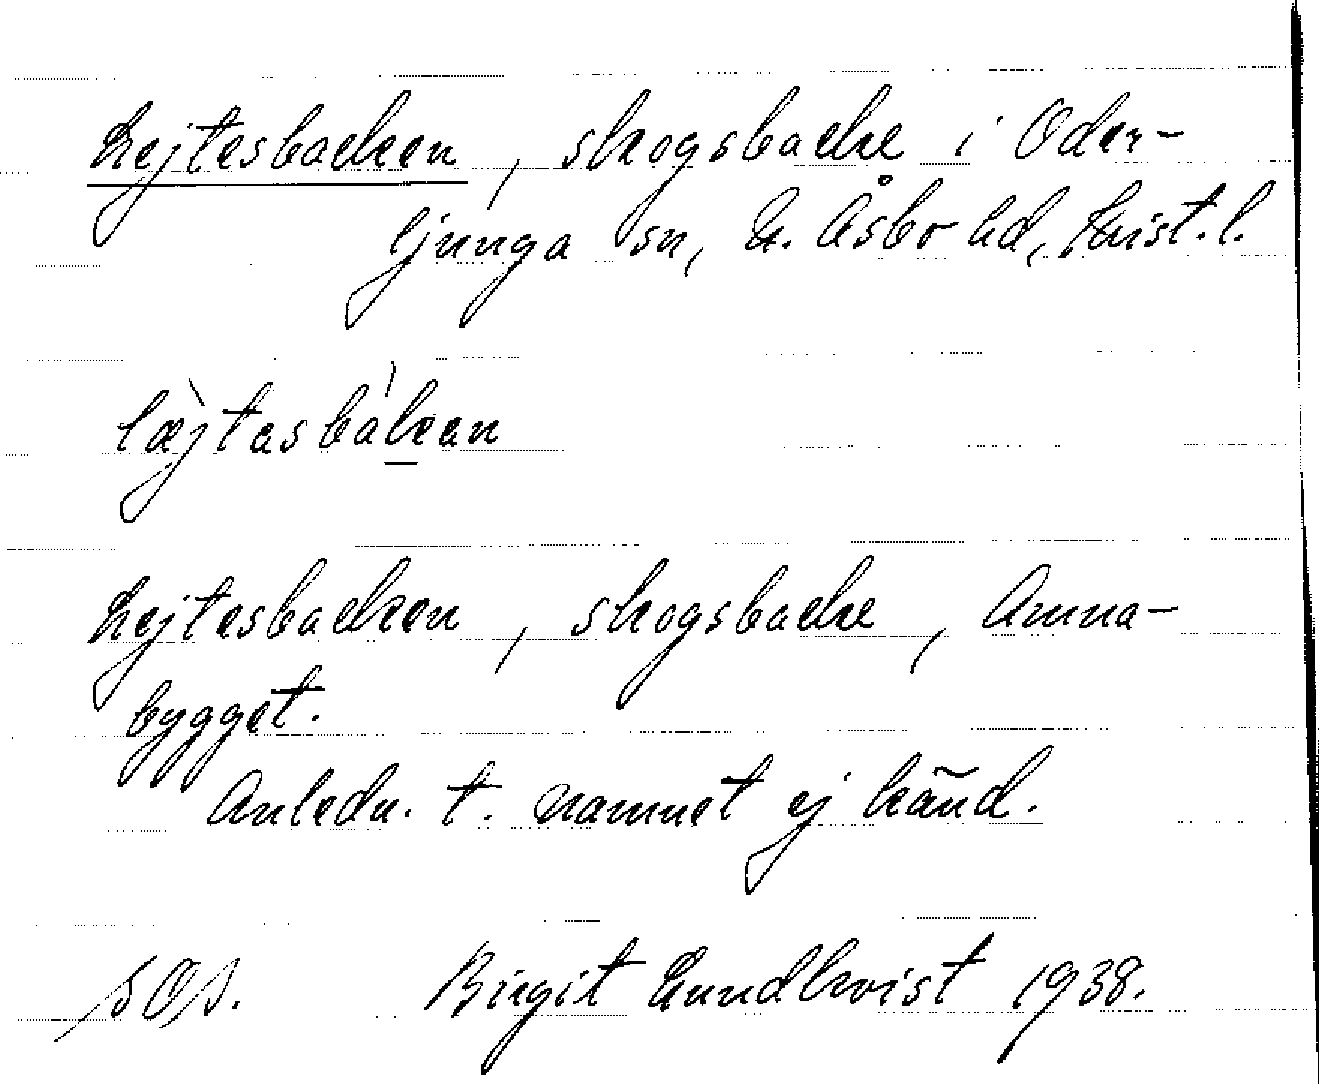 Lejtesbacken, skogsbacke i Oder-
ljunga sn, N. Åsbo hd, Krist. l.
læ̀jtasbák̲an
Lejtesbacken, skogsbacke, Anna-
bygget.
Anledn. t. namnet ej känd.
Birgit Lundkvist 1938.